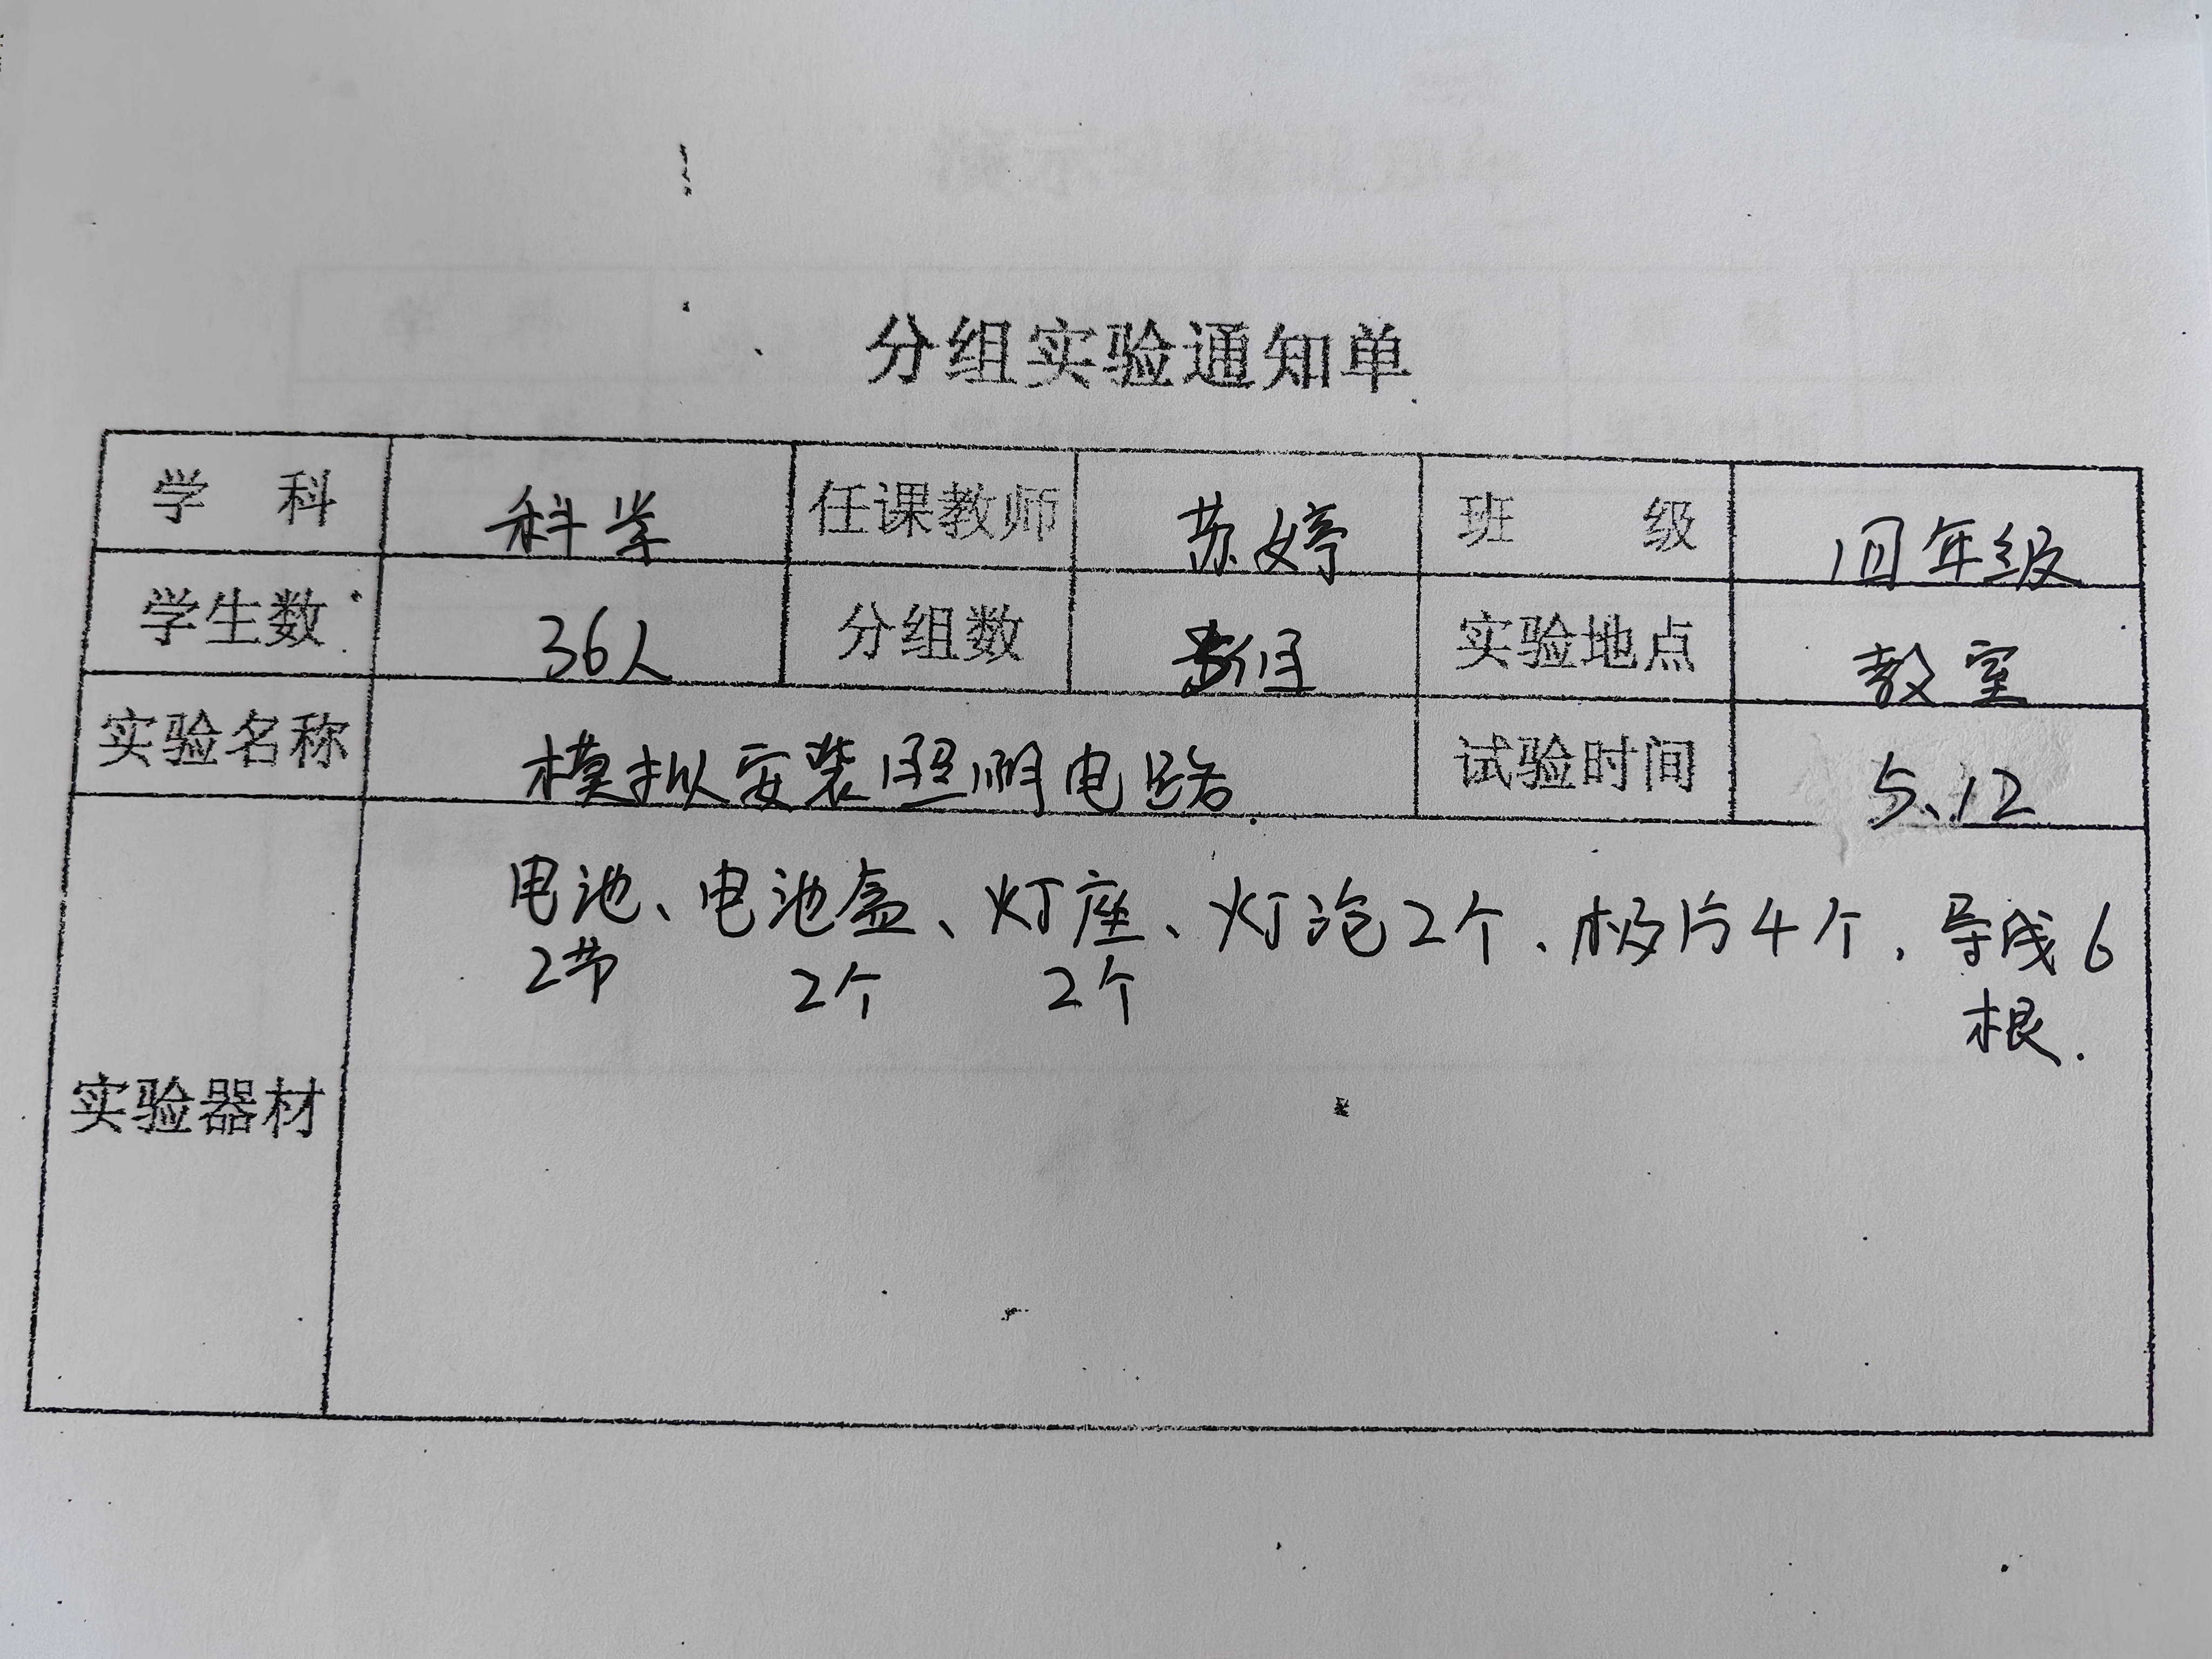 分组实验通知单
学 科 科学 任课教师 苏婷 班 级 四年级
学生数 36人 分组数 组 实验地点 教室
实验名称 模拟安装照明电路 试验时间 5、12
实验器材 电池、电池盒、灯座、灯泡2个、极片4个,导线6
2节 2个 2个
根.